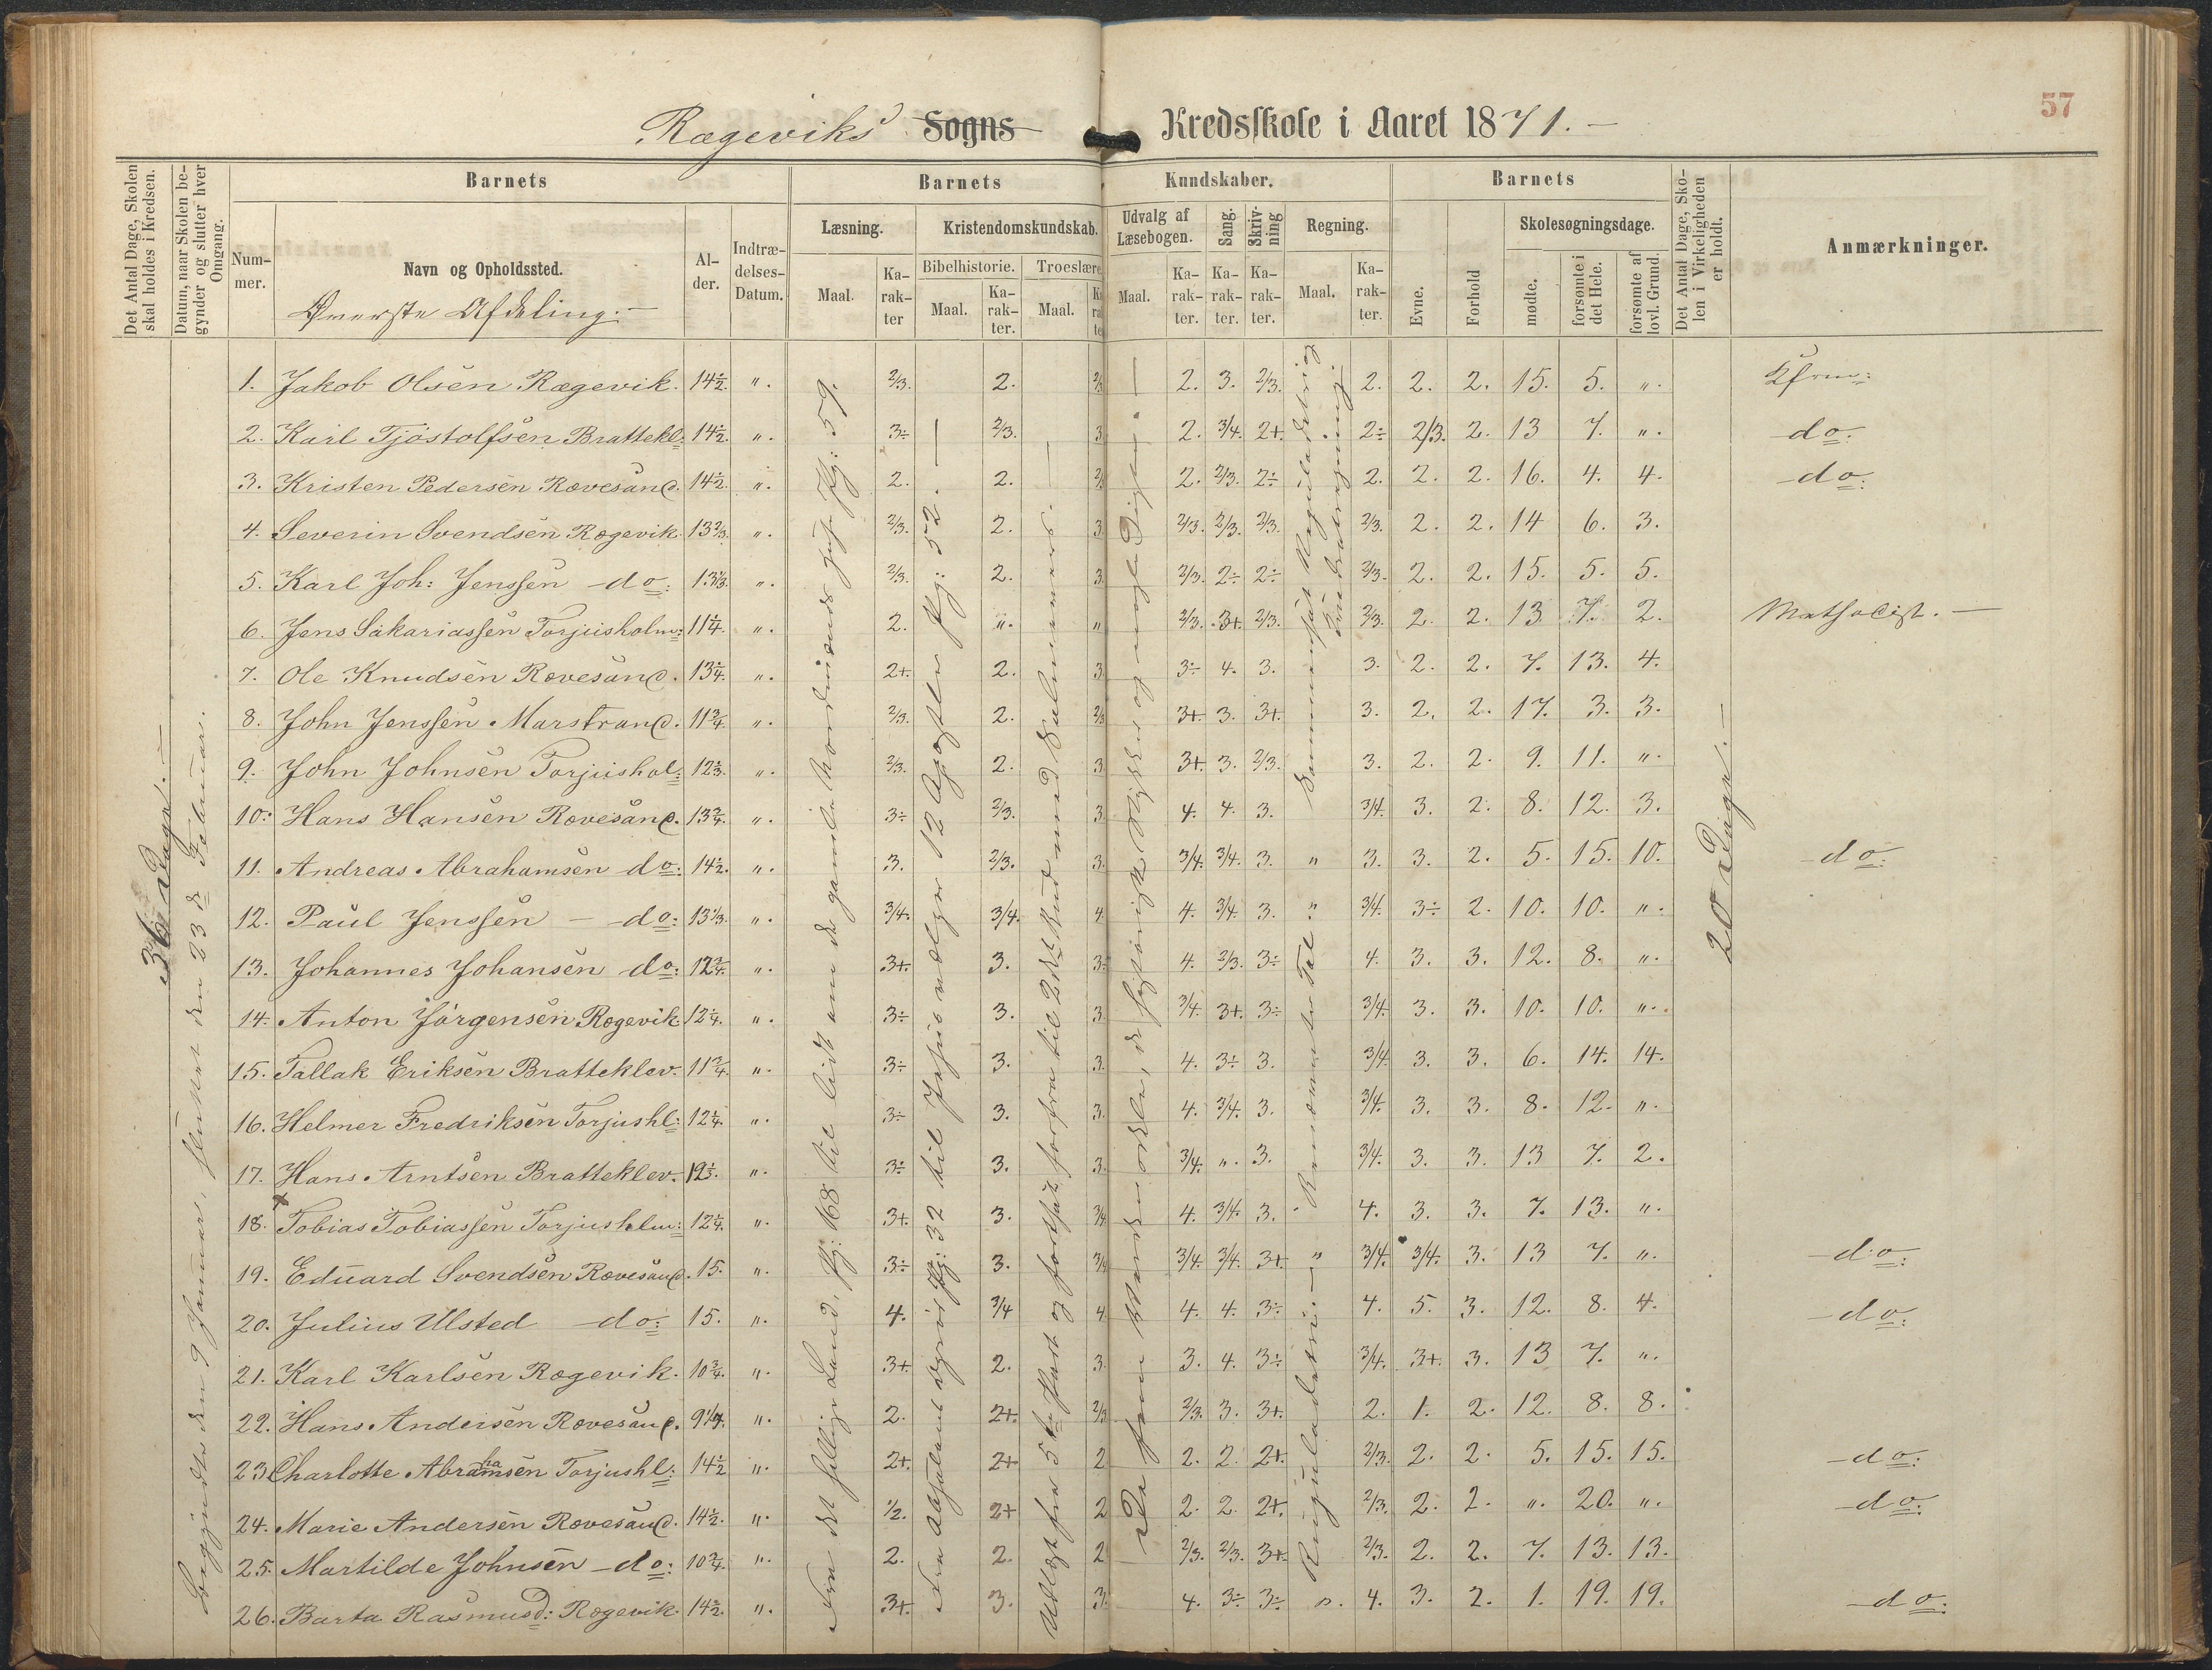 57
Rægeviks Sogns Kredsskole i Aaret 1871. —
Det Antal Dage, Skolen skal holdes i Kredsen.
Datum, naar Skolen begynder og slutter hver Omgang.
Barnets
Barnets Kundskaber.
Barnets
Det Antal Dage, Skolen i Virkeligheden er holdt.
Anmærkninger.
Nummer.
Navn og Opholdssted.
Alder.
Indtrædelses-Datum.
Læsning.
Kristendomskundskab.
Udvalg af Læsebogen.
Sang.
Skrivning
Regning.
Evne.
Forhold
Skolesøgningsdage.
Bibelhistorie. Troeslære
Maal. Karakter Maal. Karakter. Maal. Maal. Karakter. Karakter. Karakter. Maal. Karakter.
mødte. forsømte i det Hele. forsømte af lovl. Grund.
Øverste Afdeling. —
36 Dage. —
20 Dage. —
1. Jakob Olsen Rægevik. 14½. ". 2/3. 2. 2/3 2. 3. 2/3. 2. 2. 2. 15. 5. ".
2. Karl Tjøstolfsen Brattekl: 14½. ". 3÷ 2/3. 3 2. 3/4. 2+. 2÷ 2/3. 2. 13 7. ". do:
3. Kristen Pedersen Rævesand. 14½. ". 2. 2. 2/3 2. 2/3. 2÷ 2. 2. 2. 16. 4. 4. do:
4. Severin Svendsen Rægevik. 13⅔. ". 2/3. 2. 3. 2/3. 2/3. 2/3. 2/3. 2. 2. 14 6. 3.
5. Karl Joh: Jenssen do: 13⅓. ". 2/3. 2. 3. 2/3. 2÷ 2÷ 2/3. 2. 2. 15. 5. 5.
6. Jens Sakariassen Torjusholm: 11¼. ". 2. ". " 2/3. 3+. 2/3. 2/3. 2. 2. 13 7. 2.
7. Ole Knudsen Rævesand. 13¼. ". 2+. 2. 3. 3÷ 4. 3. 3. 2. 2. 7. 13. 4.
8. John Jenssen Marstrand. 11¾. ". 2/3. 2. 2/3 3+. 3. 3+. 3. 2. 2. 17. 3. 3.
9. John Johnsen Torjushol: 12⅓. ". 2/3. 2. 3. 3+. 3. 2/3. 3. 2. 2. 9. 11. ".
10. Hans Hansen Rævesand. 13¾. ". 3÷ 2/3. 3. 4. 4. 3. 3/4. 3. 2. 8. 12. 3.
11. Andreas Abrahamsen do: 14½. ". 3. 2/3. 3. 3/4. 3/4. 3. " 3. 3. 2. 5. 15. 10. do:
12. Paul Jenssen — do: 13⅓. ". 3/4. 3/4. 4. 4. 3/4. 3. " 3/4. 3÷ 2. 10. 10. ".
13. Johannes Johansen do: 12¾. ". 3+. 3. 3÷ 4. 2/3. 3÷ 4. 3. 3. 12. 8. ".
14. Anton Jørgensen Rægevik 12¼. ". 3÷ 3. 3. 3/4. 3+. 3÷ 3/4. 3. 3. 10. 10. ".
15. Tallak Eriksen Bratteklev. 11¾. ". 3÷ 3. 3. 4. 3÷ 3. 3/4. 3. 3. 6. 14. 14.
16. Helmer Fredriksen Torjushl: 12¼. ". 3÷ 3. 3. 4. 3/4. 3. 3/4. 3. 3. 8. 12. ".
17. Hans Arntsen Bratteklev. 12⅓. ". 3÷ 3. 3. 3/4. ". 3. 3/4. 3. 3. 13 7. 2.
18. Tobias Tobiassen Torjusholm: 12¼. ". 3+. 3. 3/4 4. 3/4. 3. 4. 3. 3. 7. 13. ".
19. Eduard Svendsen Rævesand. 15. ". 3÷ 3. 3/4 3/4. 3/4. 3+. " 3/4. 3/4. 3. 13 7. ". do:
20. Julius Ulsted do: 15. ". 4. 3/4 4. 4. 4. 3÷ 4. 5. 3. 12. 8. 4. do:
21. Karl Karlsen Rægevik. 10¾. ". 3+. 2. 3. 3. 4. 3÷ 3/4. 3+. 3. 13 7. ".
22. Hans Andersen Rævesand. 9¼. ". 2. 2+. 2/3 2/3. 3. 3+. 2. 1. 2. 12. 8. 8.
23 Charlotte Abrahamsen Torjushl: 14½ ". 2+. 2+ 2 2. 2. 2+. 2/3. 2. 2. 5. 15. 15. do:
24. Marie Andersen Rævesand. 14½. ". ½. 2+ 2 2. 2. 2+. 2/3. 2. 2. ". 20. ". do:
25. Martilde Johnsen do: 10¾. ". 2. 2. 2 2/3. 2/3. 3+. 2/3. 2. 2. 7. 13. 13.
26. Barta Rasmusd: Rægevik. 14½. ". 3+. 3. 3. 4. 3÷ 3÷ ". 4. 3. 2. 1. 19. 19. do: